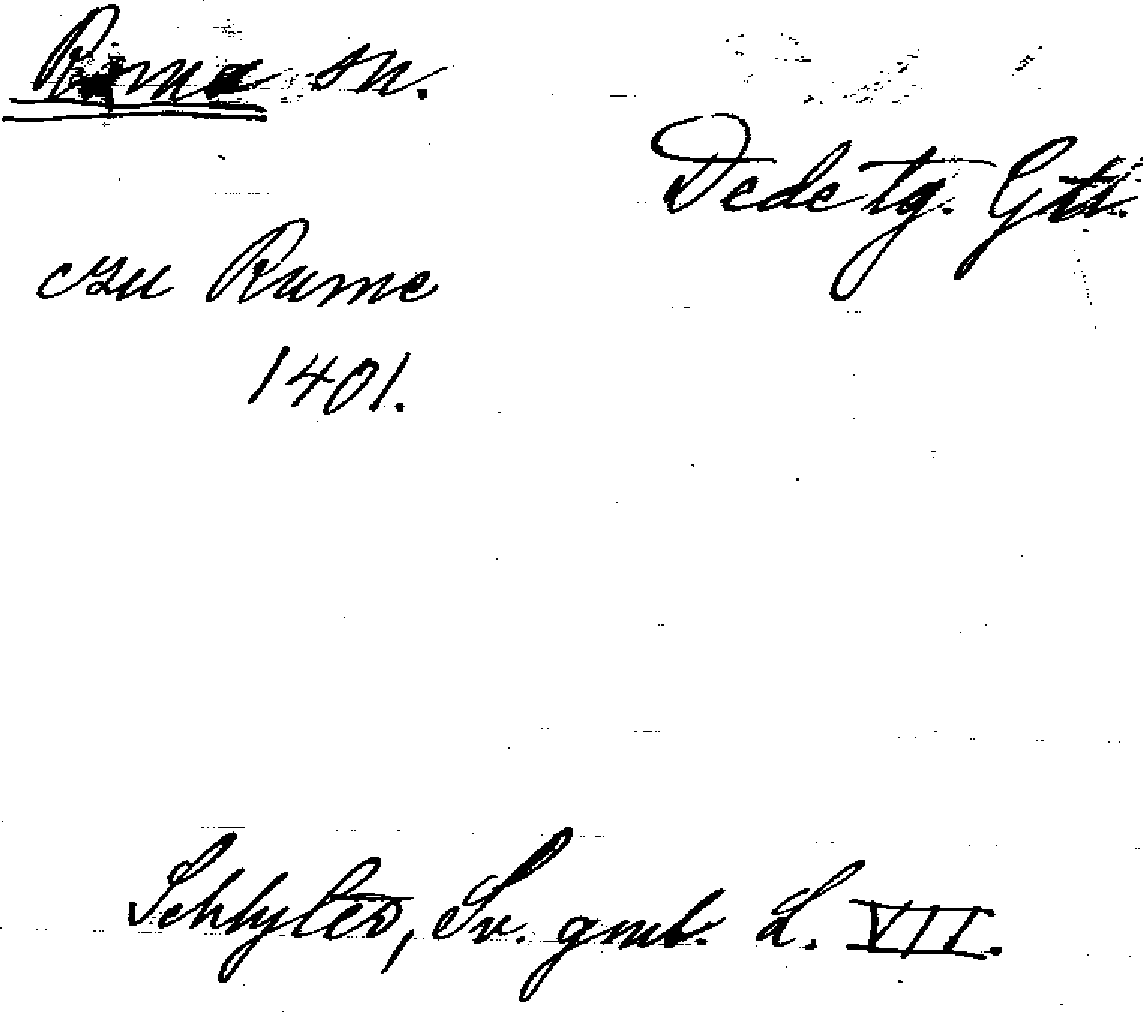 Roma sn.
Dede tg. Gtl.
czu Rume
1401.
Schlyter, Sv. gml. L. VII.